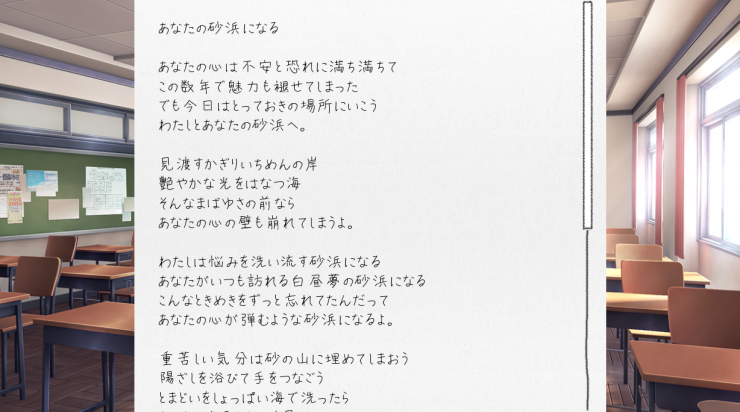 あなたの砂浜になる
あなたの心は不安と恐れに満ち満ちて
この数年で魅力も褪せてしまった
でも今日はとっておきの場所にいこう
わたしとあなたの砂浜へ。
見渡すかぎりいちめんの岸
艶やかな光をはなつ海
そんなまばゆさの前なら
あなたの心の壁も崩れてしまうよ。
わたしは悩みを洗い流す砂浜になる
あなたがいつも訪れる白昼夢の砂浜になる
こんなときめきをずっと忘れてたんだって
あなたの心が弾むような砂浜になるよ。
重苦しい気分は砂の山に埋めてしまおう
陽ざしを浴びて手をつなごう
とまどいをしょっぱい海で洗ったら